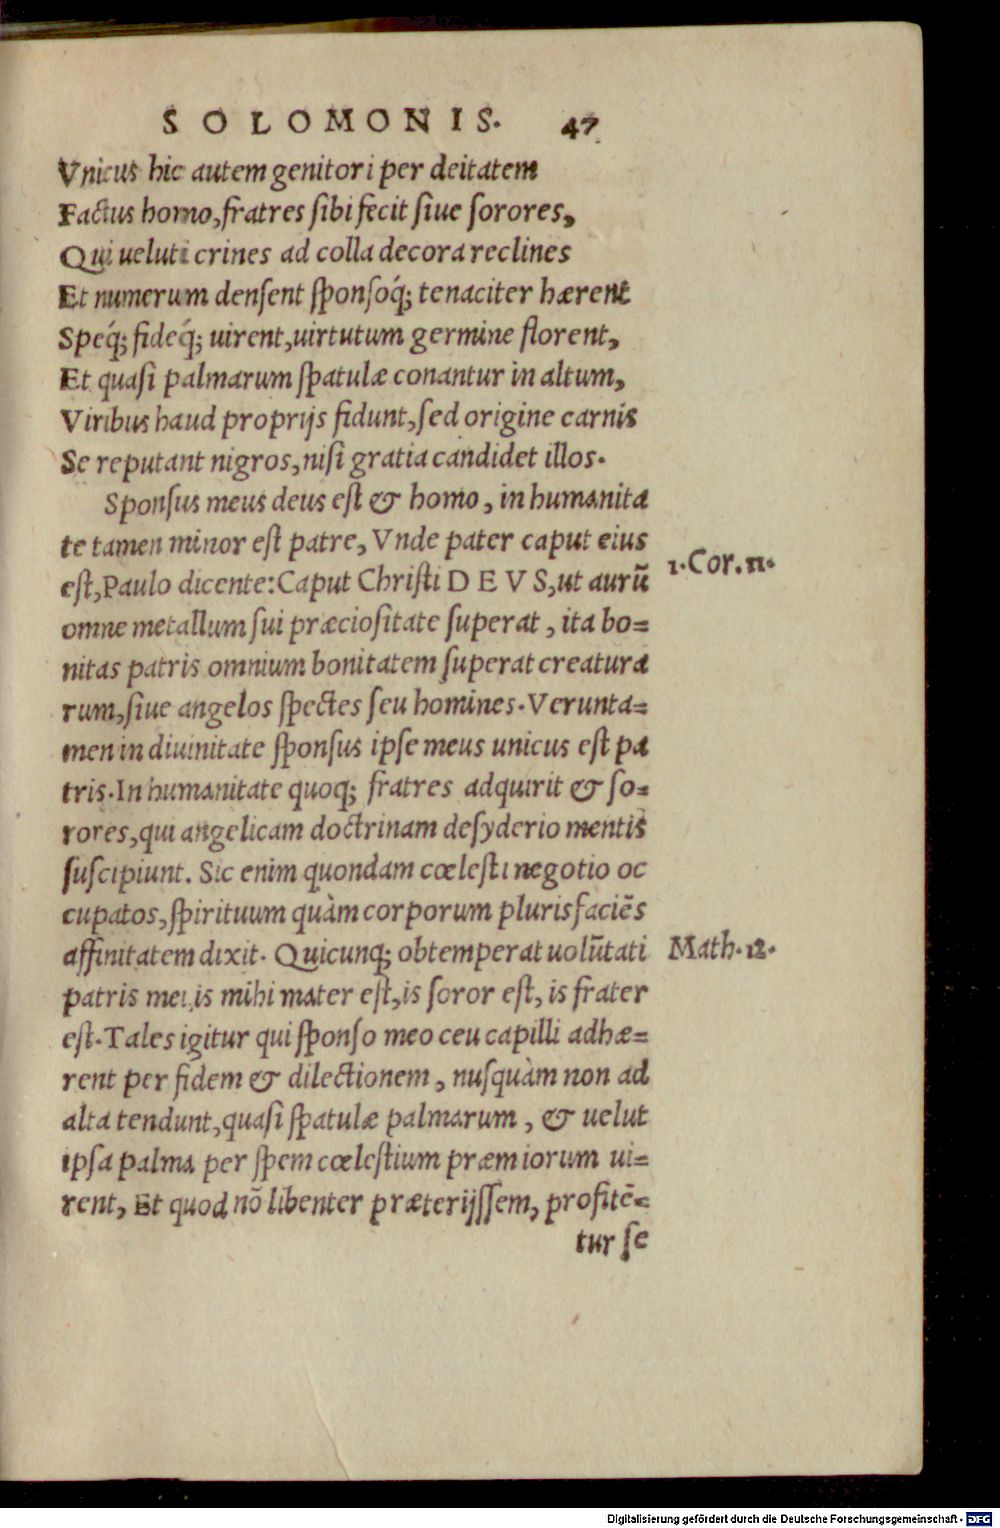 SOLOMONIS. 47
Vnicus hic autem genitori per deitatem
Factus homo, fratres sibi fecit siue sorores,
Qui ueluti crines ad colla decora reclines
Et numerum densent sponsoq́; tenaciter hærent
Speq́; fideq́; uirent, uirtutum germine florent,
Et quasi palmarum spatulæ conantur in altum,
Viribus haud proprijs fidunt, sed origine carnis
Se reputant nigros, nisi gratia candidet illos.
Sponsus meus deus est & homo, in humanita
te tamen minor est patre, Vnde pater caput eius
est, Paulo dicente: Caput Christi DEVS, ut aurũ
1. Cor. 11.
omne metallum sui præciositate superat, ita bo=
nitas patris omnium bonitatem superat creatura
rum, siue angelos spectes seu homines. Verunta=
men in diuinitate sponsus ipse meus unicus est pa
tris. In humanitate quoq; fratres adquirit & so=
rores, qui angelicam doctrinam desyderio mentis
suscipiunt. Sic enim quondam cœlesti negotio oc
cupatos, spirituum quàm corporum pluris faciẽs
affinitatem dixit. Quicunq; obtemperat uolũtati
Math. 12.
patris mei, is mihi mater est, is soror est, is frater
est. Tales igitur qui sponso meo ceu capilli adhæ=
rent per fidem & dilectionem, nusquàm non ad
alta tendunt, quasi spatulæ palmarum, & uelut
ipsa palma per spem cœlestium præmiorum ui=
rent, Et quod nõ libenter præterijssem, profitẽ=
tur se
Digitalisierung gefördert durch die Deutsche Forschungsgemeinschaft - DFG